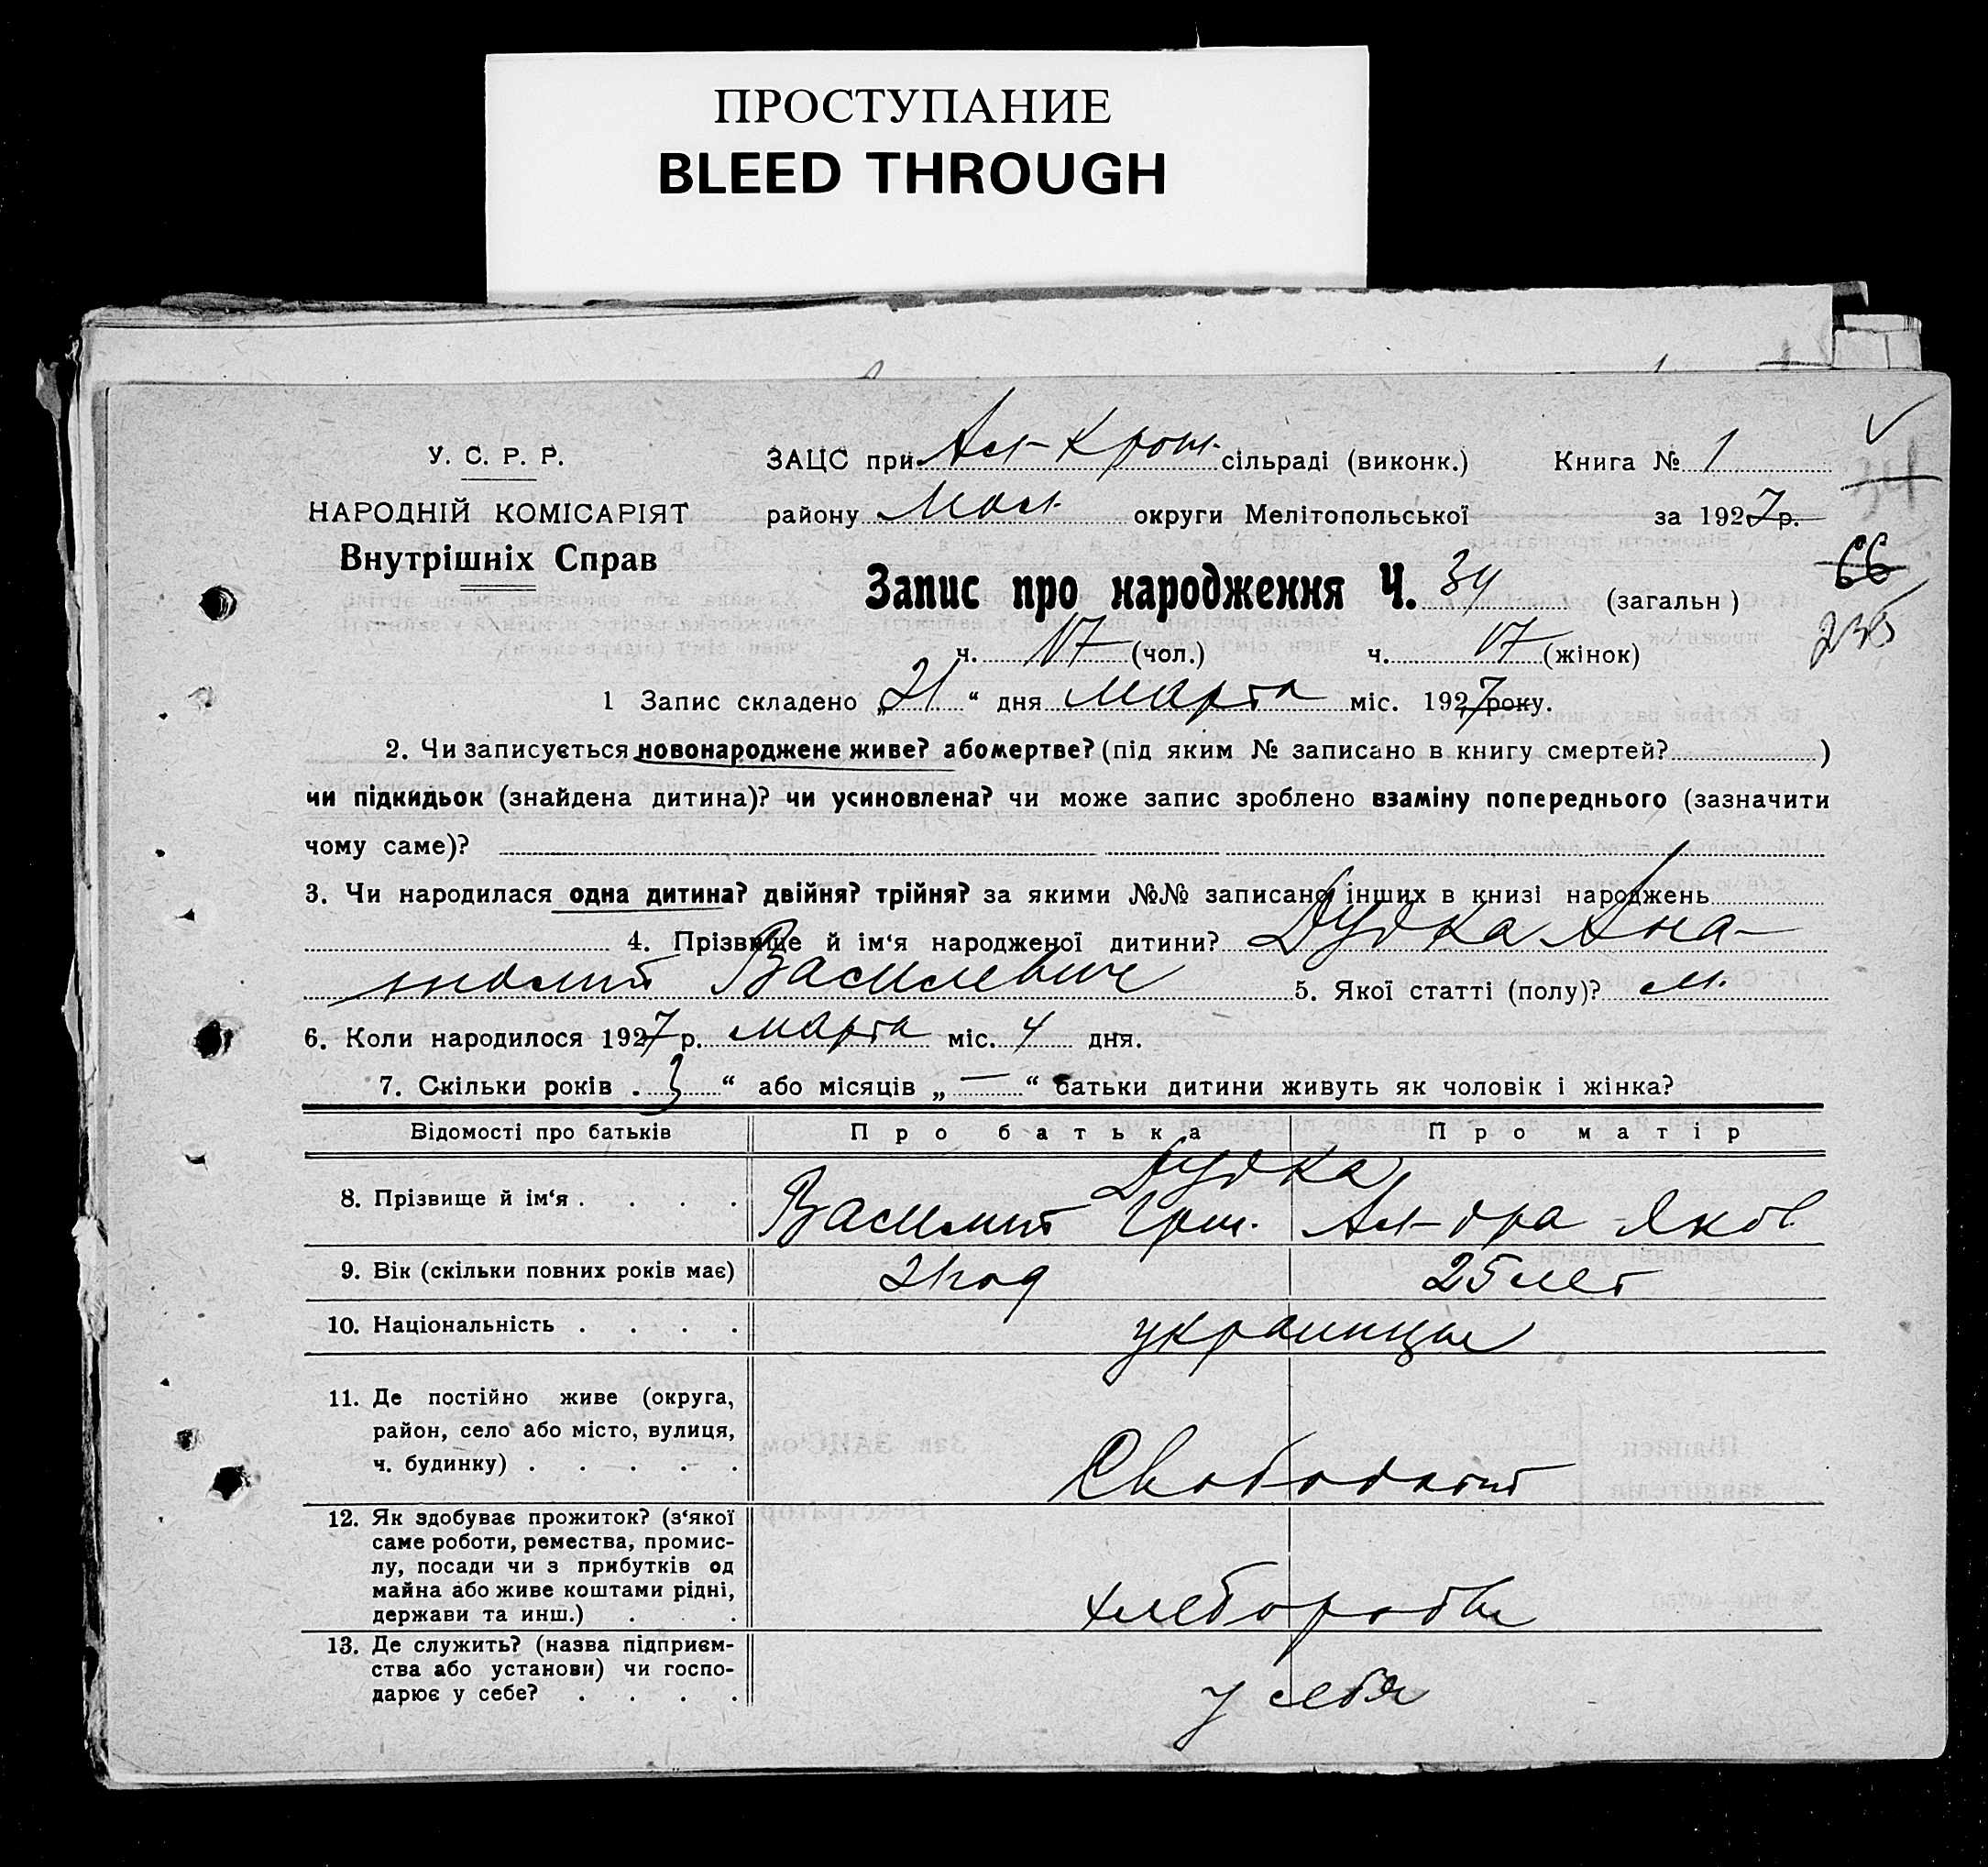 ПРОСТУПАНИЕ
BLEED THROUGH
У. С. Р. Р.
НАРОДНІЙ КОМІСАРІЯТ
Внутрішніх Справ
ЗАЦС при Ал-Крош. сільраді (виконк.) Книга № 1
району Мол. округи Мелітопольської за 1927 р.
34
66
Запис про народження Ч. 34 (загальн)
235
ч. 17 (чол.) ч. 17 (жінок)
1 Запис складено „21“ дня марта міс. 1927 року.
2. Чи записується новонароджене живе? або мертве? (під яким № записано в книгу смертей? )
чи підкидьок (знайдена дитина)? чи усиновлена? чи може запис зроблено взаміну попереднього (зазначити
чому саме)?
3. Чи народилася одна дитина? двійня? трійня? за якими №№ записано інших в книзі народжень
4. Прізвище й ім‘я народженої дитини? Дудка Ана-
толий Василевич 5. Якої статті (полу)? м.
6. Коли народилося 1927 р. марта міс. 4 дня.
7. Скільки років . 3 “ або місяців „ — “ батьки дитини живуть як чоловік і жінка?
Відомості про батьків Про батька Про матір
8. Прізвище й ім‘я . . . . Дудка
Василий Григ. Ал-дра Яков.
9. Вік (скільки повних років має) 21 год 25 лет
10. Національність . . . . украинцы
11. Де постійно живе (округа,
район, село або місто, вулиця,
ч. будинку) . . . . .
12. Як здобуває прожиток? (з‘якої
саме роботи, ремества, промис-
лу, посади чи з прибутків од
майна або живе коштами рідні,
держави та инш.) . . . хлеборобы
13. Де служить? (назва підприєм-
ства або установи) чи госпо-
дарює у себе? . . . . у себя